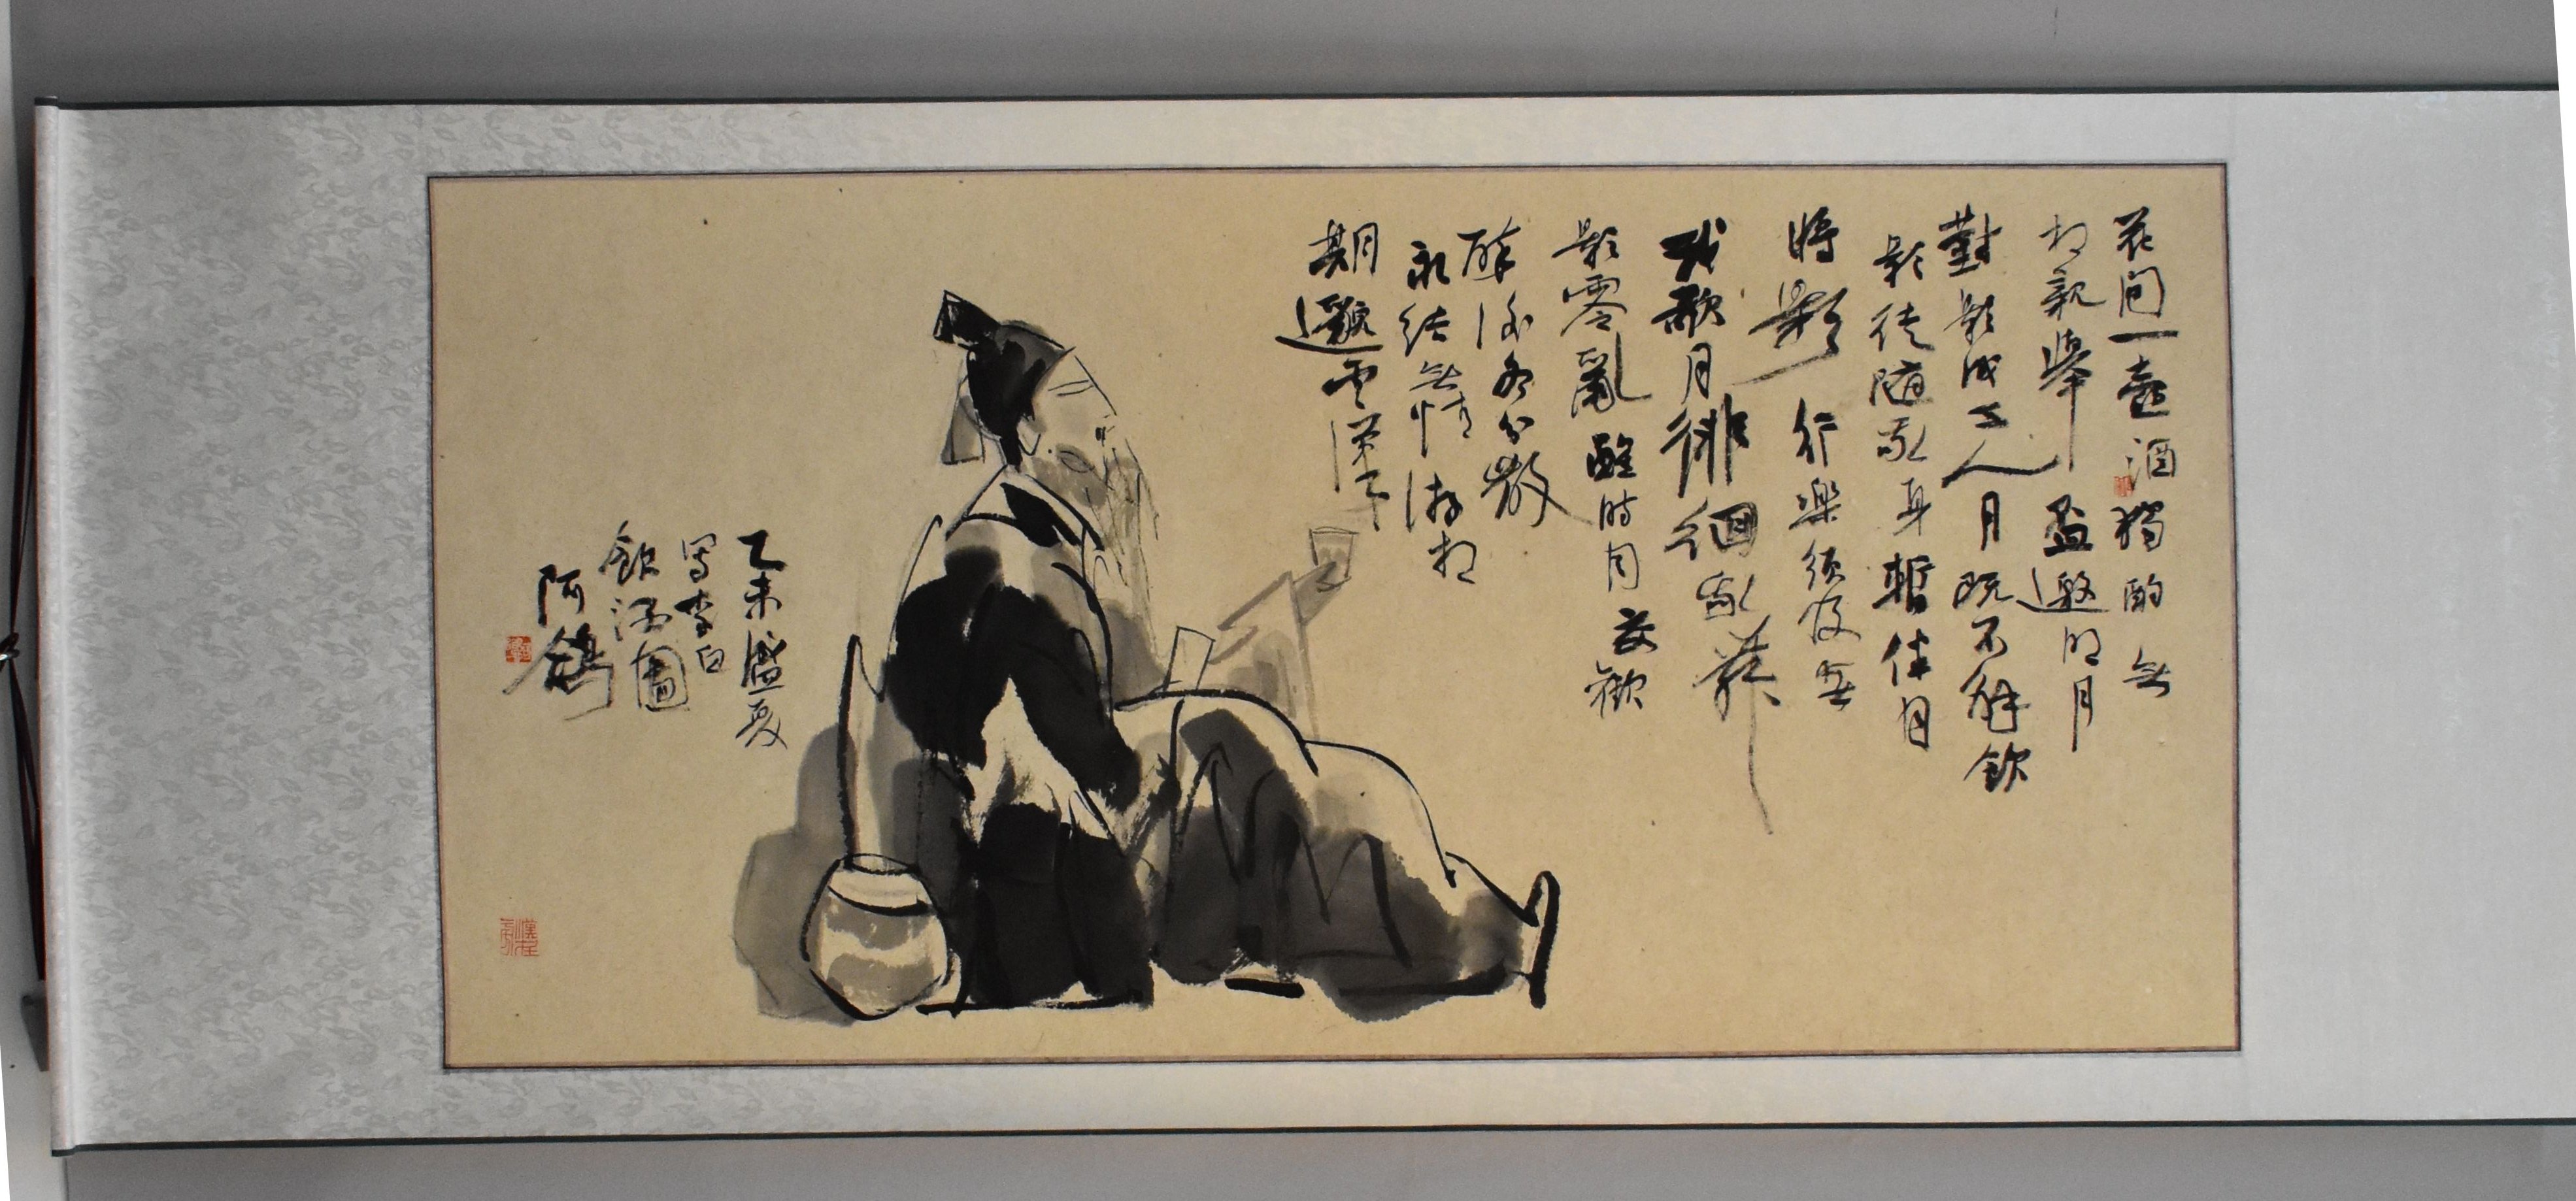 花間一壺酒獨酌無
相親舉盃邀明月
對影成三人月既不解飲
影徒隨我身暫伴月
將影行樂須及春
我歌月徘徊我舞
影零亂醒時同交歡
醉後各分散
永結無情游相
期邈雲漢
乙未盛夏
写李白
飲酒圖
阿鴿